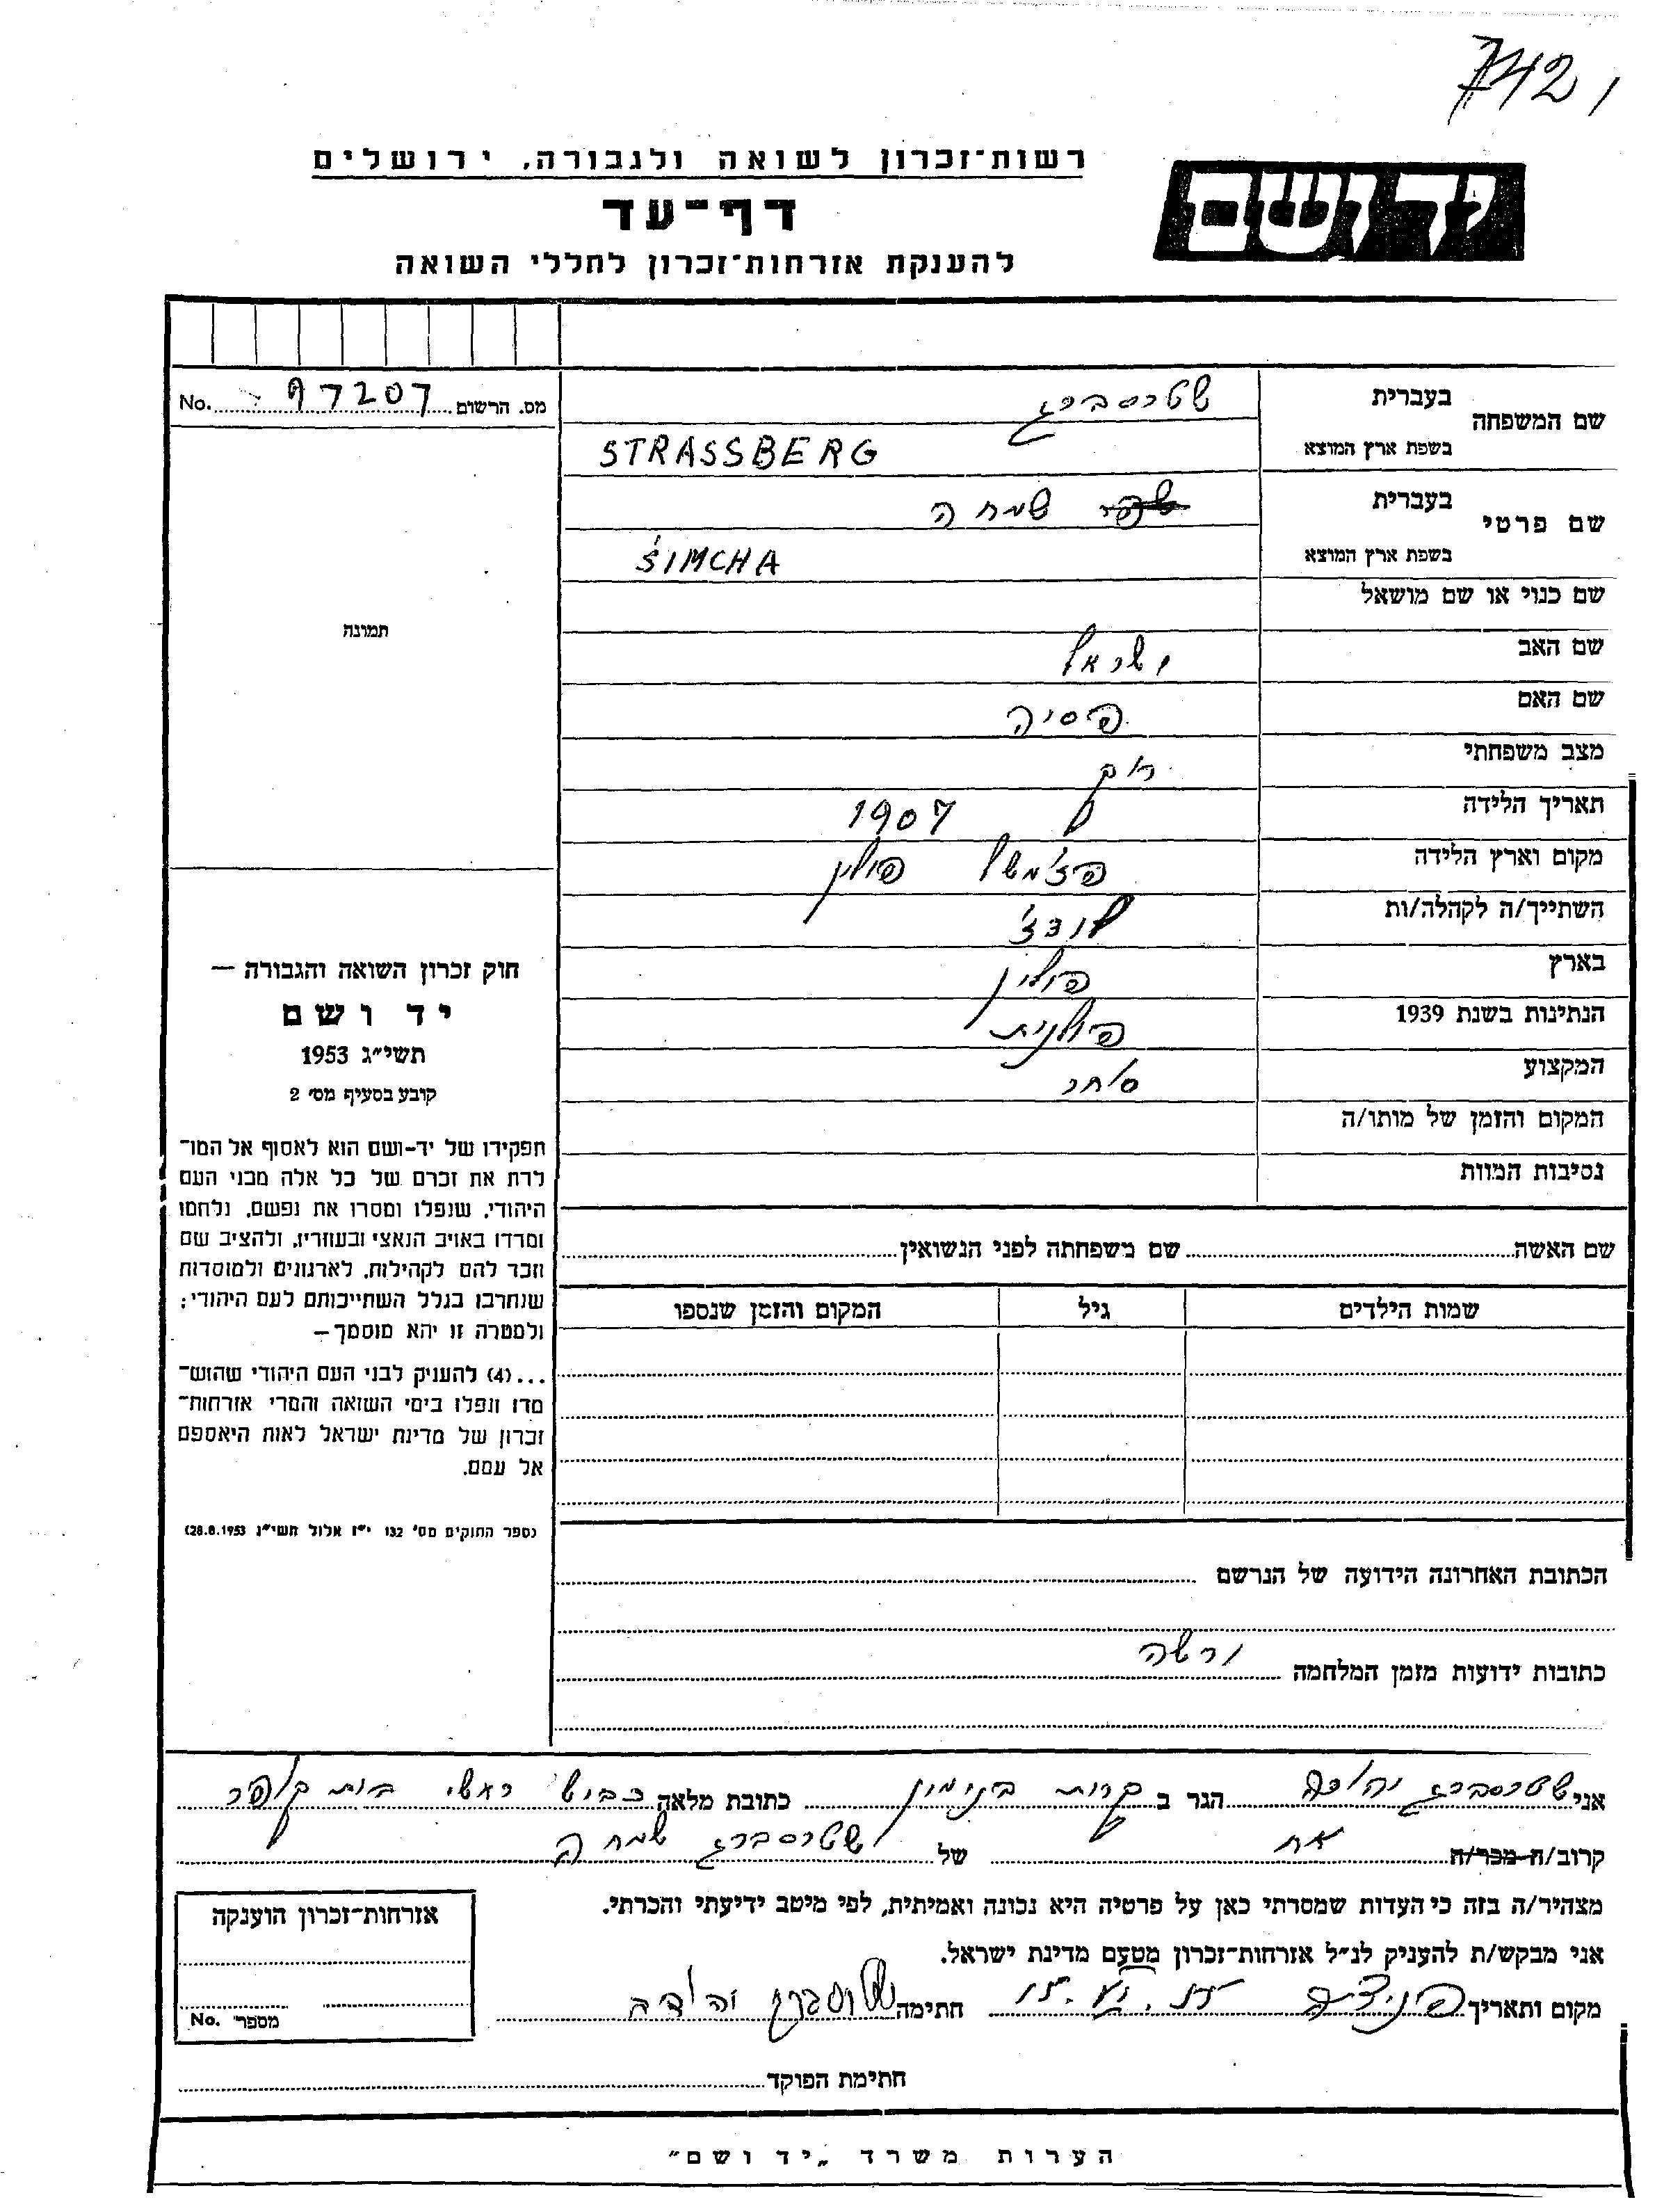 7421
רשות־זכרון לשואה ולגבורה, ירושלים
יד ושם
דף־עד
להענקת אזרחות־זכרון לחללי השואה
מס. הרשום 97207 No.
שם המשפחה
בעברית שטרסברג
בשפת ארץ המוצא STRASSBERG
שם פרטי
בעברית שמחה
בשפת ארץ המוצא ŚIMCHA
שם כנוי או שם מושאל
תמונה
שם האב ישראל
שם האם פסיה
מצב משפחתי רוק
תאריך הלידה 1907
מקום וארץ הלידה פצ'משל פולין
השתייך/ה לקהלה/ות לודצ'
בארץ פולין
הנתינות בשנת 1939 פולנית
המקצוע סוחר
המקום והזמן של מותו/ה
נסיבות המוות
חוק זכרון השואה והגבורה —
יד ושם
תשי״ג 1953
קובע בסעיף מס׳ 2
תפקידו של יד-ושם הוא לאסוף אל המו־
לדת את זכרם של כל אלה מבני העם
היהודי, שנפלו ומסרו את נפשם, נלחמו
ומרדו באויב הנאצי ובעוזריו, ולהציב שם
וזכר להם לקהילות, לארגונים ולמוסדות
שנחרבו בגלל השתייכותם לעם היהודי;
ולמטרה זו יהא מוסמך —
...(4) להעניק לבני העם היהודי שהוש־
מדו ונפלו בימי השואה והמרי אזרחות־
זכרון של מדינת ישראל לאות היאספם
אל עמם.
(ספר החוקים מס׳ 132 י״ז אלול תשי״ג 28.8.1953)
שם האשה שם משפחתה לפני הנשואין
שמות הילדים גיל המקום והזמן שנספו
הכתובת האחרונה הידועה של הנרשם
כתובות ידועות מזמן המלחמה ורשה
אני שטרסברג יהודה הגר ב קרית בנימין כתובת מלאה כביש ראשי בית קופר
קרוב/ה מכר/ה אח של שטרסברג שמחה
מצהיר/ה בזה כי העדות שמסרתי כאן על פרטיה היא נכונה ואמיתית, לפי מיטב ידיעתי והכרתי.
אני מבקש/ת להעניק לנ״ל אזרחות־זכרון מטעם מדינת ישראל.
מקום ותאריך חתימה שטרסברג יהודה
אזרחות־זכרון הוענקה
מספר No.
חתימת הפוקד
הערות משרד „יד ושם״